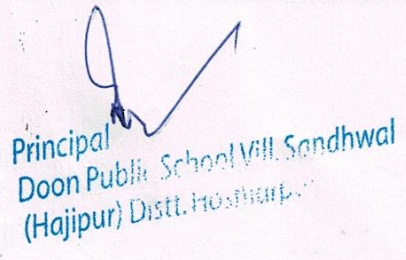 Principal
Doon Public School Vill. Sandhwal
(Hajipur) Distt.